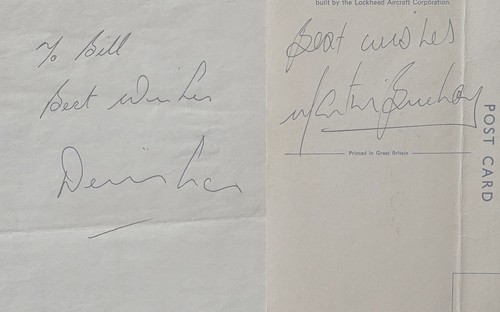 To Bill
Best wishes
Denis Law
built by the Lockheed Aircraft Corporation.
Best wishes
Martin Buchan
Printed in Great Britain
POST CARD